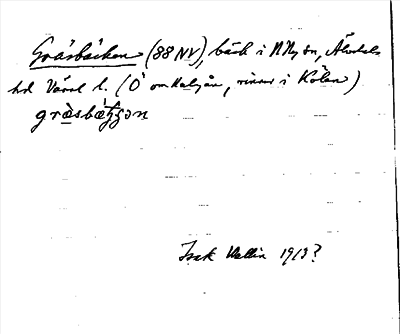 Gräsbäcken (88 NV), bäck i N Ny sn, Älvdals
hd Värml l. (Ö om Halgån, rinner i Kölan)
grä̀sbæ̀tʃʃən
Isak Wallin 1913?